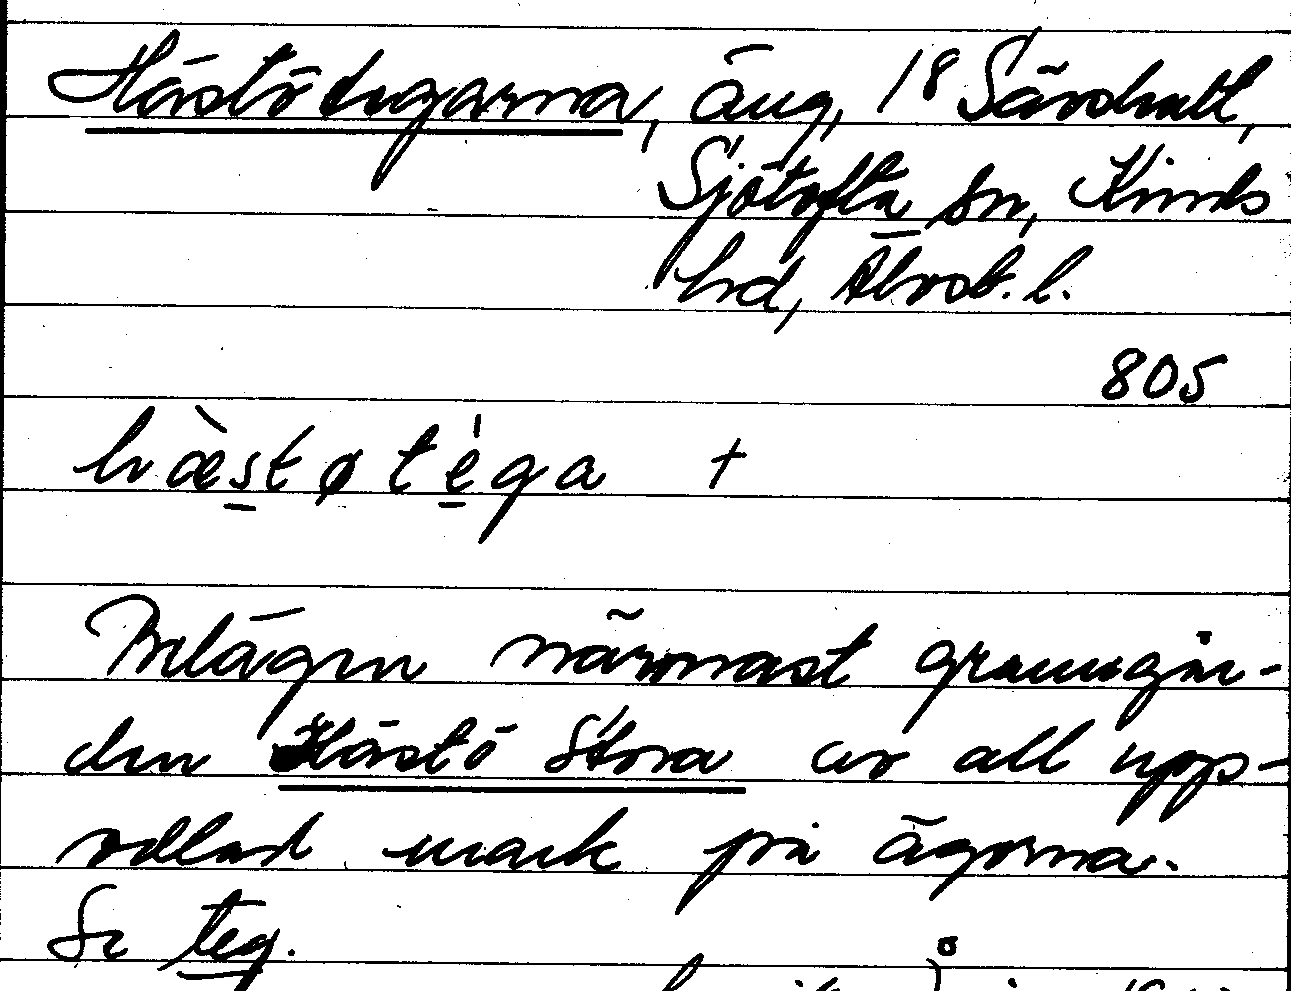 Hästö tegarna, äng, 18 Särdhult,
Sjötofta sn, Kinds
hd, Älvsb. l.
805
hæ̀støtéga +
Belägen närmast granngår-
den Hästö Stora av all upp-
odlad mark på ägorna.
Se teg.